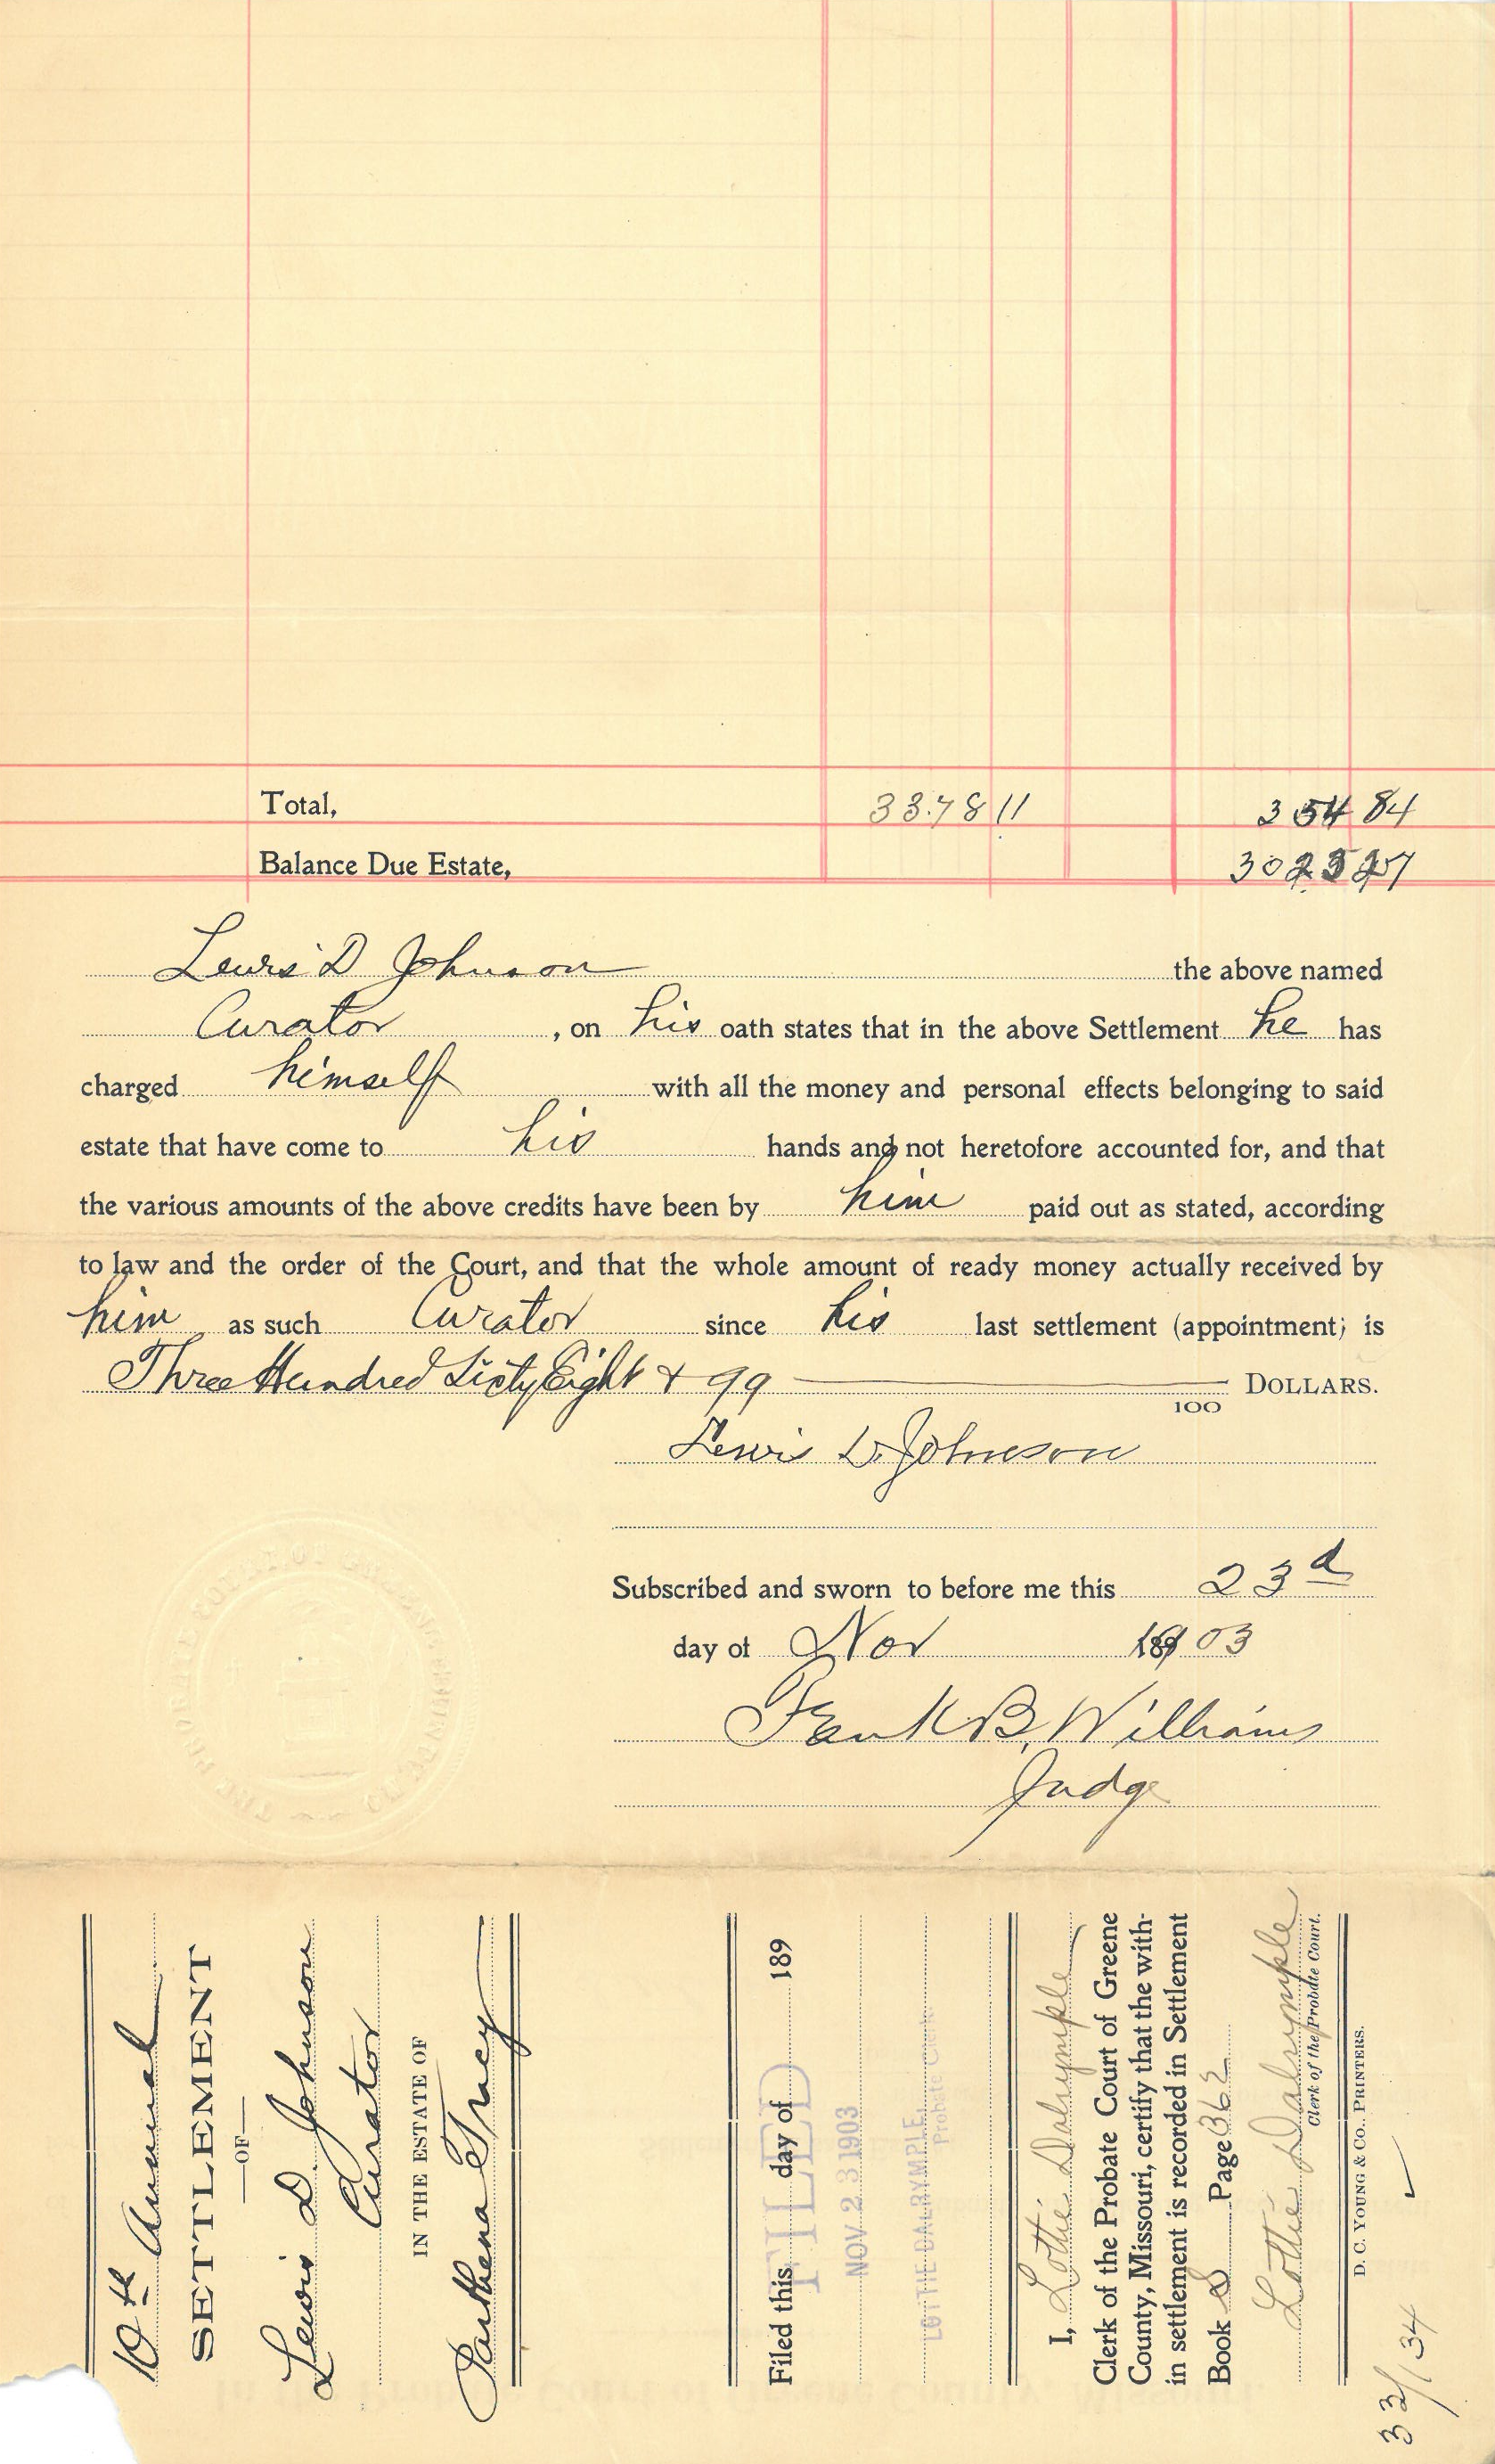 Total, 3378 11 354 84
Balance Due Estate, 3023 27
Lewis D Johnson the above named
Curator, on his oath states that in the above Settlement he has
charged himself with all the money and personal effects belonging to said
estate that have come to his hands and not heretofore accounted for, and that
the various amounts of the above credits have been by him paid out as stated, according
to law and the order of the Court, and that the whole amount of ready money actually received by
him as such Curator since his last settlement (appointment; is
Three Hundred Sixty Eight & 99/100 DOLLARS.
Lewis D. Johnson
Subscribed and sworn to before me this 23d
day of Nov 1903
Frank B. Williams
Judge
10th Annual
SETTLEMENT
—OF—
Lewis D. Johnson
Curator
IN THE ESTATE OF
Parthena Tracy
Filed this day of 189
FILED
NOV 23 1903
LOTTIE DALRYMPLE,
Probate Clerk
I, Lottie Dalrymple
Clerk of the Probate Court of Greene
County, Missouri, certify that the with-
in settlement is recorded in Settlement
Book Page 362
Lottie Dalrymple
Clerk of the Probate Court.
D. C. YOUNG & CO., PRINTERS.
33/134